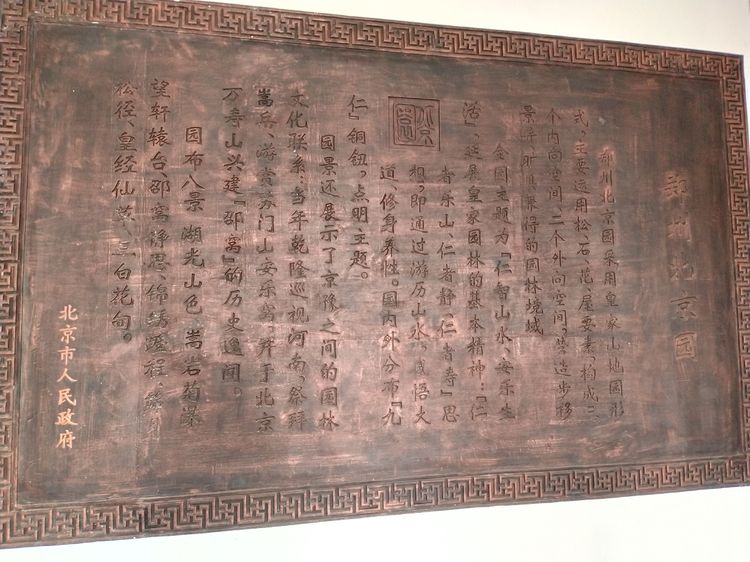 郑州北京园
郑州北京园采用皇家山地园形
式，主要运用松、石、花、屋要素，构成三
个内向空间、二个外向空间。营造步移
景异、旷奥兼得的园林境域
全园主题为『仁智山水、安乐生
活』，延展皇家园林的基本精神：『仁
者乐山、仁者静、仁者寿』思
想，即通过游历山水，感悟大
道、修身养性。园内外分布『九
仁』铜钮。点明主题。
园景还展示了京豫之间的园林
文化联系：当年乾隆巡视河南，祭拜
嵩岳、游赏苏门山安乐窝，并于北京
万寿山兴建『邵窝』的历史逸闻。
园布八景 湖光山色、嵩岩菊瀑
望轩辕台、邵窝静思、锦绣 程、
松径、皇经仙 、三白花甸。
北京市人民政府